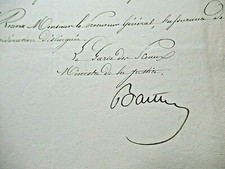 Monsieur le Procureur Général, l'assurance de
considération distinguée
Le Garde des Sceaux
Ministre de la justice
Barthe